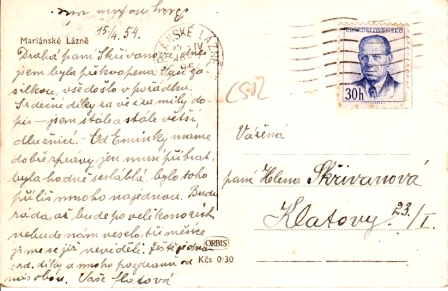 15/4. 54.
Mariánské Lázně
Drahá paní Skřivanová, moc
jsem byla překvapena Vaší zá-
silkou, vše došlo v pořádku.
Srdečné díky za vše i za milý do-
pis – jsem stále a stále větší
dlužnicí. Od Eminky máme
dobré zprávy, jen musí přibrat,
byla hodně sesláblá, bylo toho
příliš mnoho najednou. Budu
ráda, až bude po velikonocích
nebude nám veselo, tři měsíce
jsme se již neviděli. Ještě jedna-
díky a mnoho pozdravů od
nás obou. Vaše
MARIÁNSKÉ LÁZNĚ
ČESKOSLOVENSKO
30h
Vážená
paní Helena Skřivanová
Klatovy 23/I.
ORBIS
Kčs 0·30